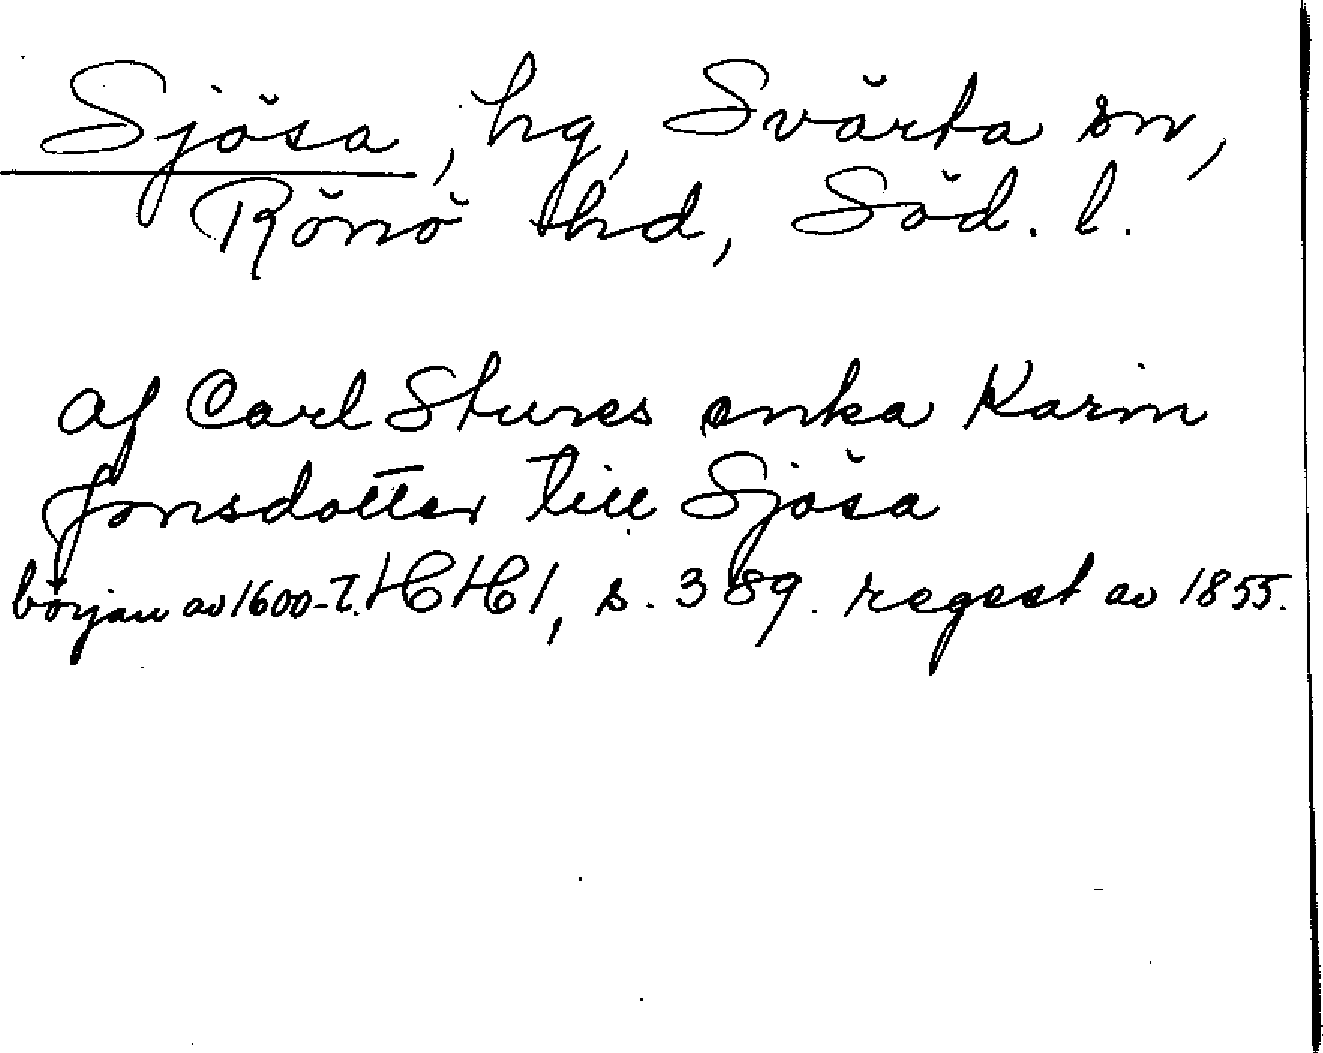 Sjösa, hg, Svärta sn,
Rönö hd, Söd. l.
af Carl Stures enka Karin
Jonsdotter till Sjösa
början av 1600-t. HH1, s. 389. regest av 1855.